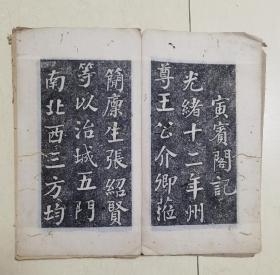 寅賓閣記
光緒十二年州
尊王公介卿蒞
簡廩生張紹賢
等以治城五門
南北西三方均